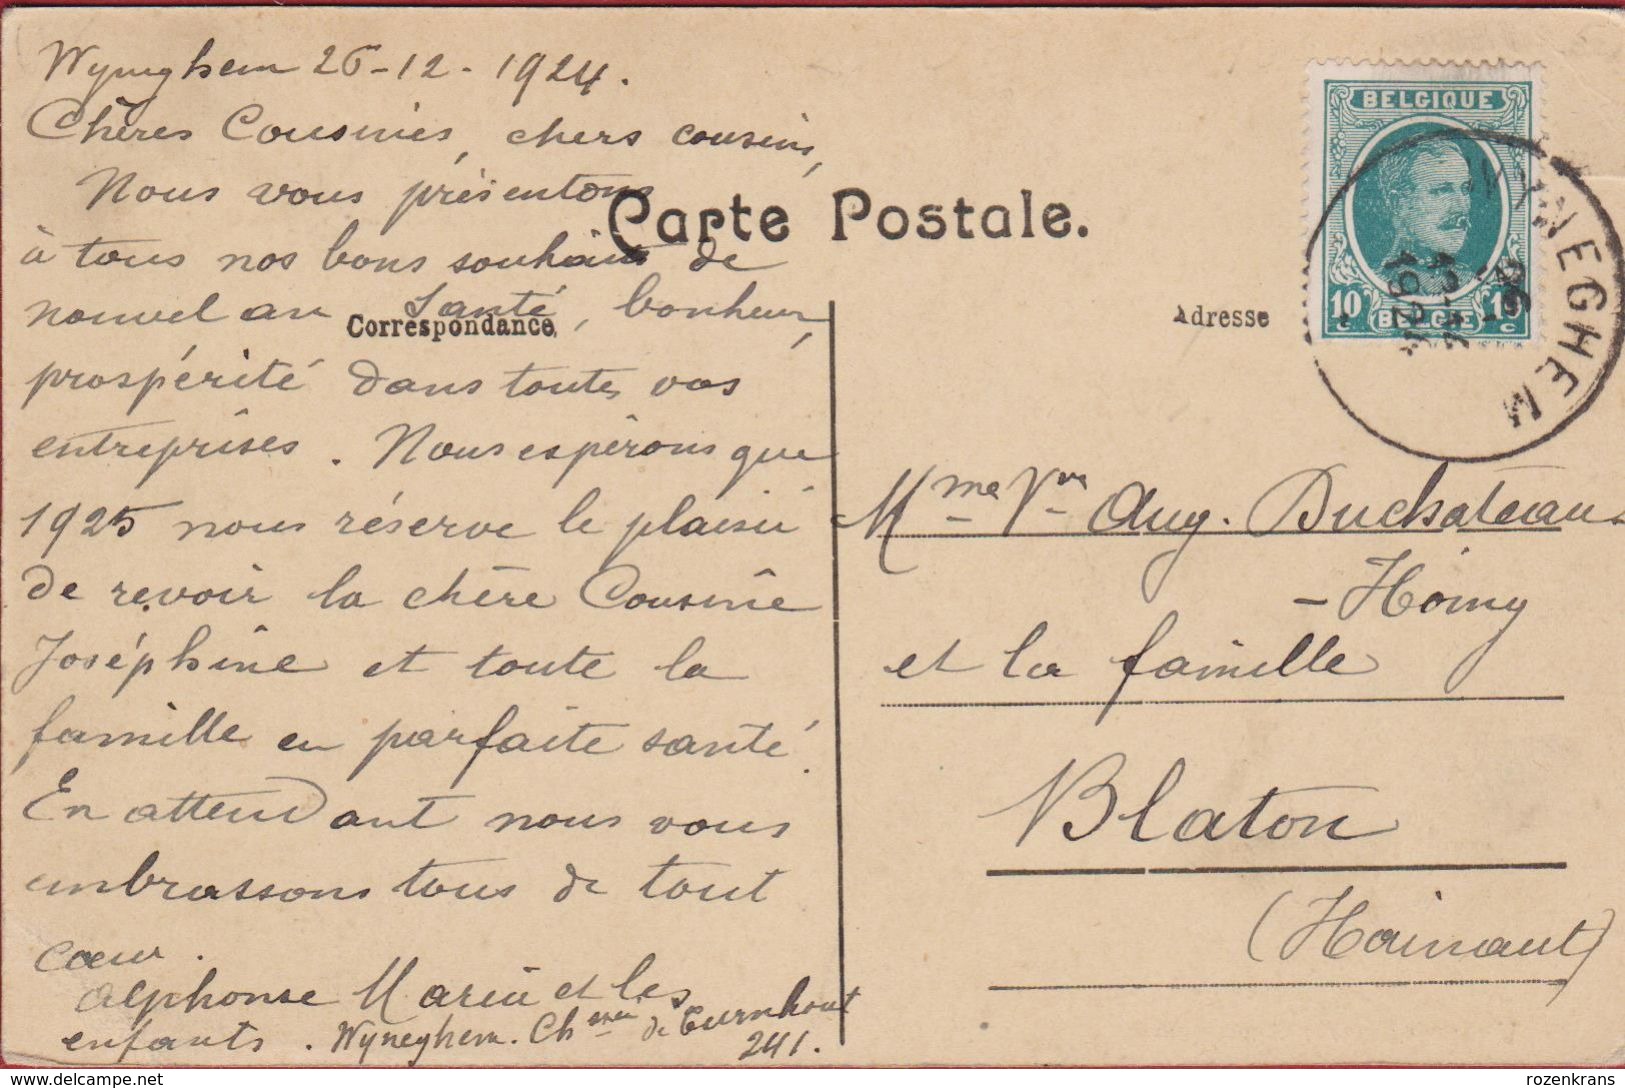 Wyneghem 26-12-1924.
Chères Cousines, chers cousins,
Nous vous présentons
à tous nos bons souhaits de
nouvel an Santé, bonheur,
prospérité dans toutes vos
entreprises. Nous espérons que
1925 nous réserve le plaisir
de revoir la chère Cousine
Joséphine et toute la
famille en parfaite santé.
En attendant nous vous
embrassons tous de tout
cœur.
Alphonse Maria et les
enfants. Wyneghem. Ch de Turnhout
241.
Carte Postale.
Correspondance
Adresse
BELGIQUE
10 c
BELGIE
10 c
WYNEGHEM
26-
12-14
1924
Mme Vve Aug. Duchateau-
-Hoimy
et la famille
Blaton
(Hainaut)
© delcampe.net
rozenkrans